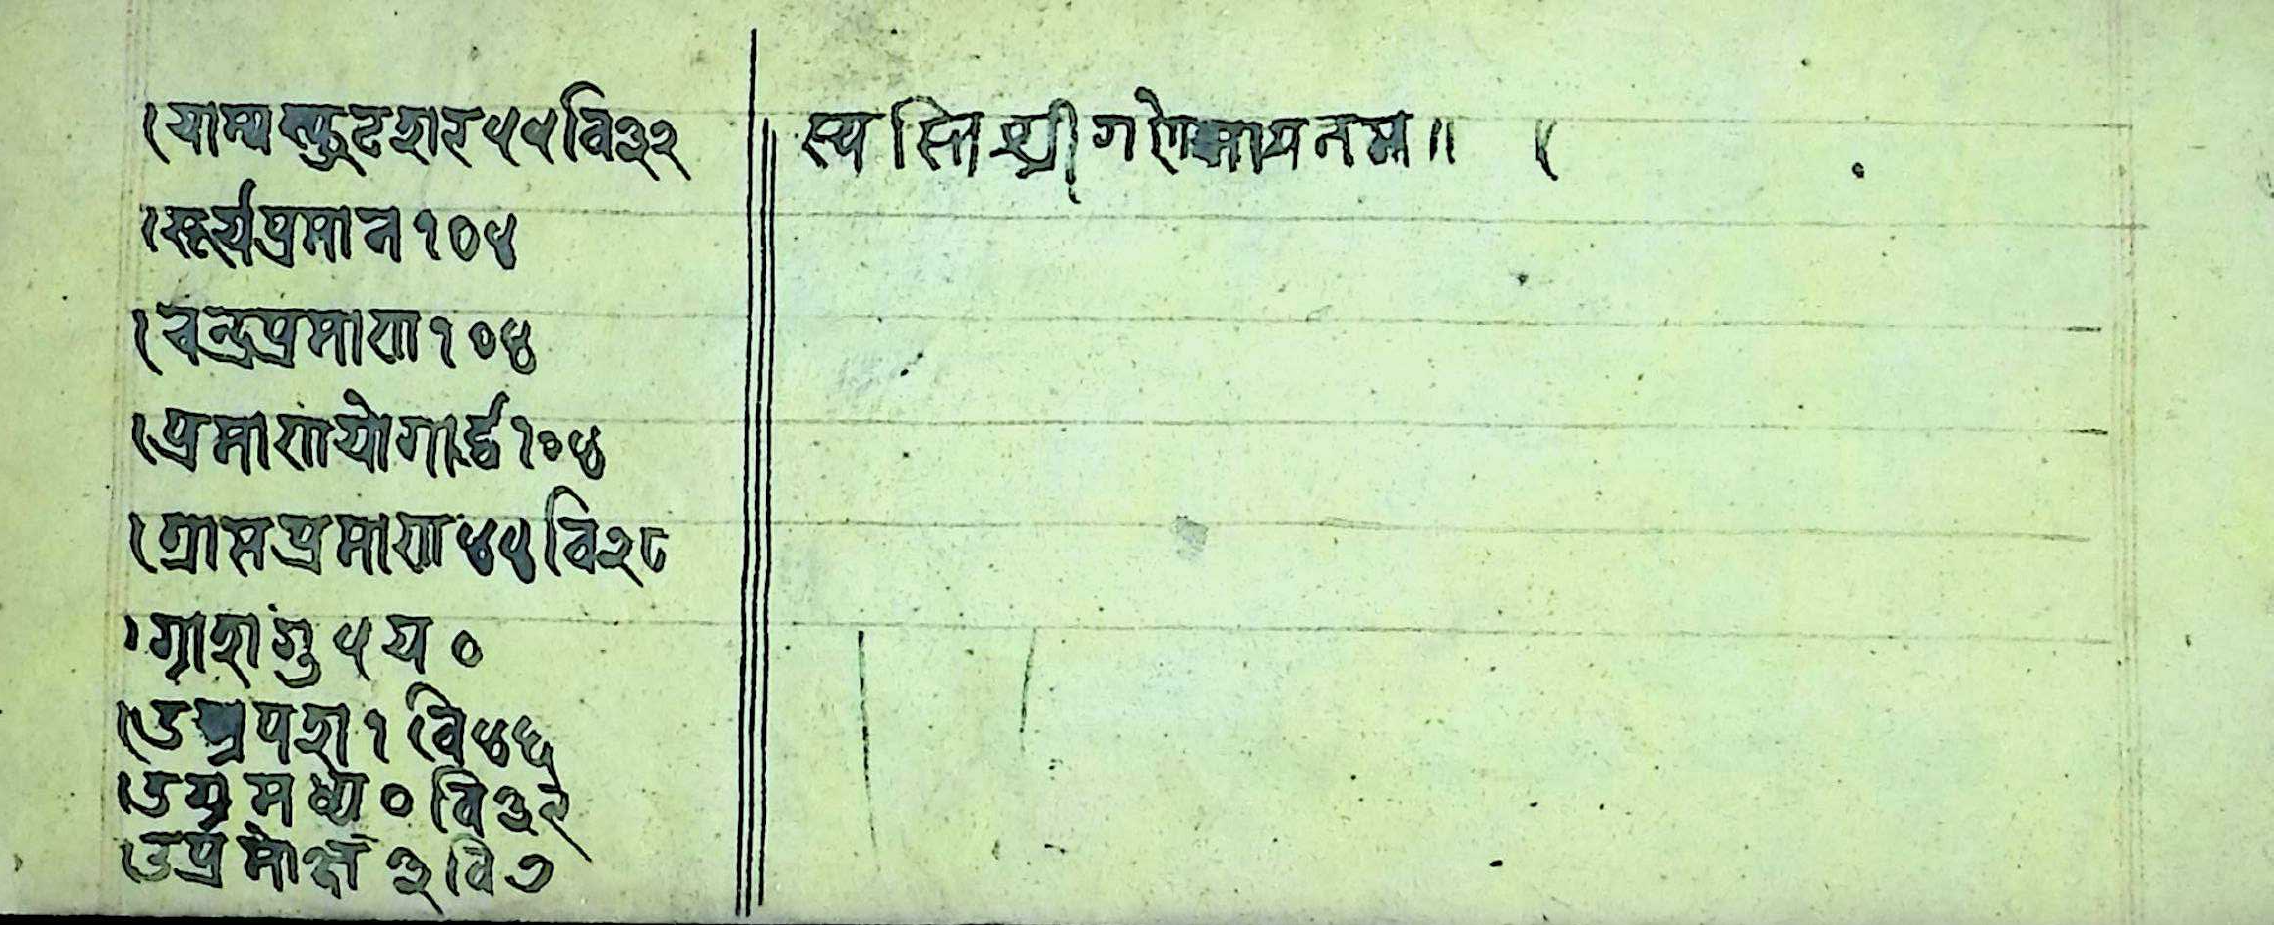 याम्य स्फुट शर ५५ वि ३२
सूर्यप्रमान १०४
चन्द्रप्रमाण १०४
प्रमाणयोगार्द्ध १०४
ग्रासप्रमाण ४५ वि २८
ग्राशंगु ५ य ०
उग्रपश १ वि ४६
उग्रमध्य ० वि ३२
उग्रमोक्ष ३ वि ७
स्वस्ति श्री गणेसायनम॥